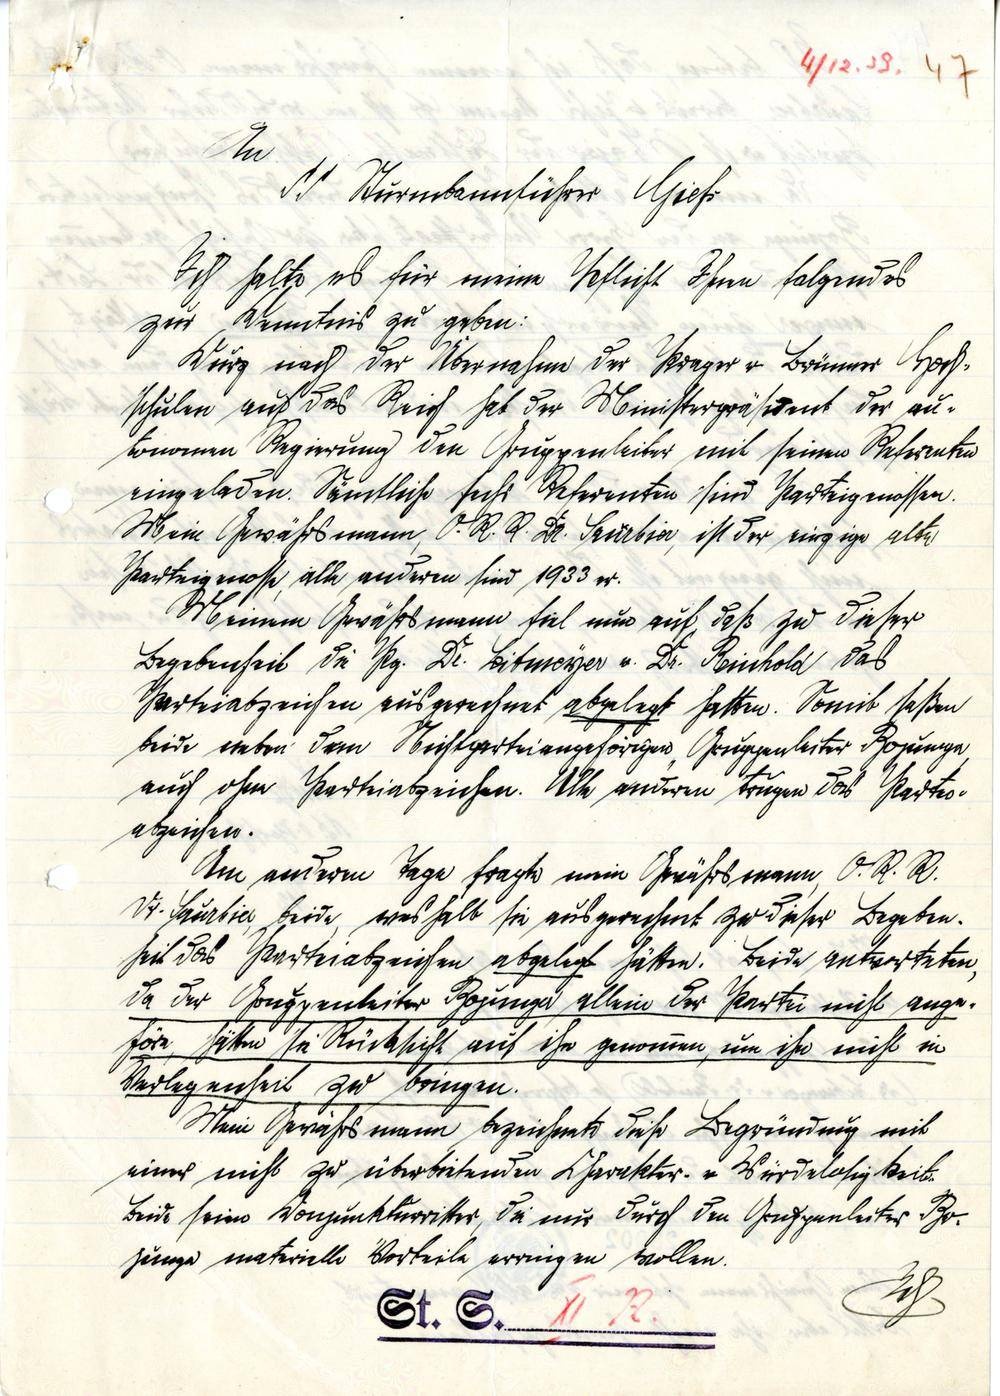 4/12.39. 47
An
SS Sturmbannführer Gieß
Ich halte es für meine Pflicht Ihnen folgendes
zur Kenntnis zu geben:
Kurz nach der Übernahme der Prager u Brünner Hoch-
schulen auf das Reich hat der Ministerpräsident der au-
tonomen Regierung den Gruppenleiter mit seinen Referenten
eingeladen. Sämtliche sechs Referenten sind Parteigenossen.
Mein Gewährsmann, O.R.R. Dr. Saurbier, ist der einzige alte
Parteigenosse, alle anderen sind 1933 er.
Meinem Gewährsmann fiel nun auf, daß zu dieser
Begebenheit die Pg. Dr. Leitmeyer u. Dr. Reinhold das
Parteiabzeichen ausgerechnet abgelegt hatten. Somit saßen
beide neben dem Nichtparteiangehörigen, Gruppenleiter Bojunga
auch ohne Parteiabzeichen. Alle anderen trugen das Partei-
abzeichen.
Am anderen Tage fragte mein Gewährsmann, O.R.R.
Dr. Saurbier, beide, weshalb sie ausgerechnet zu dieser Begeben-
heit das Parteiabzeichen abgelegt hätten. Beide antworteten,
da der Gruppenleiter Bojunga allein der Partei nicht ange-
höre, hätten sie Rücksicht auf ihn genommen, um ihn nicht in
Verlegenheit zu bringen.
Mein Gewährsmann bezeichnete diese Begründung mit
einer nicht zu überbietenden Charakter- u Würdelosigkeit.
Beide seien Konjunkturritter, die nur durch den Gruppenleiter Bo-
junga materielle Vorteile erringen wollen.
St. S. XI